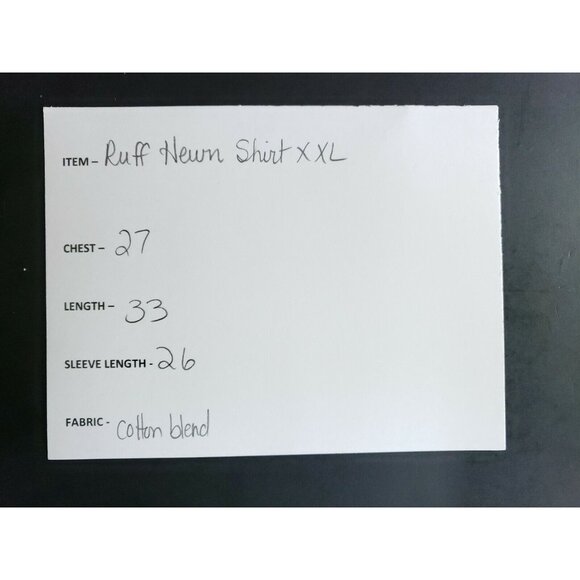 ITEM – Ruff Hewn Shirt XXL
CHEST – 27
LENGTH – 33
SLEEVE LENGTH - 26
FABRIC - cotton blend